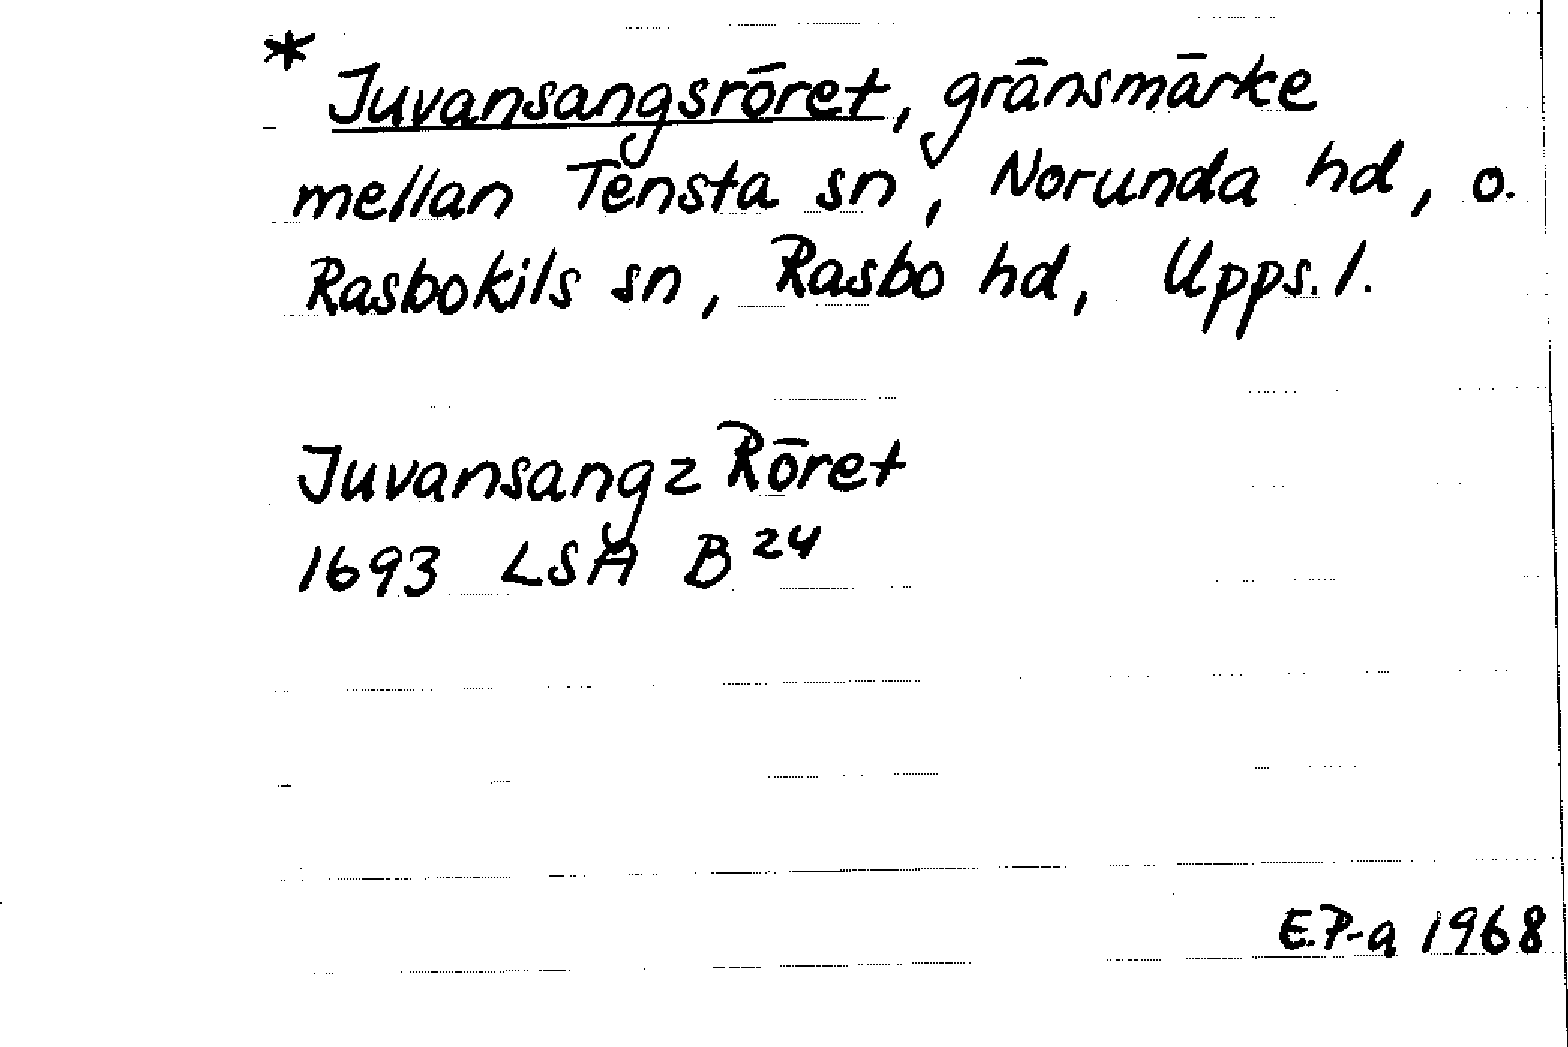 * Juvansangsröret, gränsmärke
mellan Tensta sn, Norunda hd, o.
Rasbokils sn, Rasbo hd, Upps. l.
Juvansangz Röret
1693 LSA B 24
E.P-a 1968